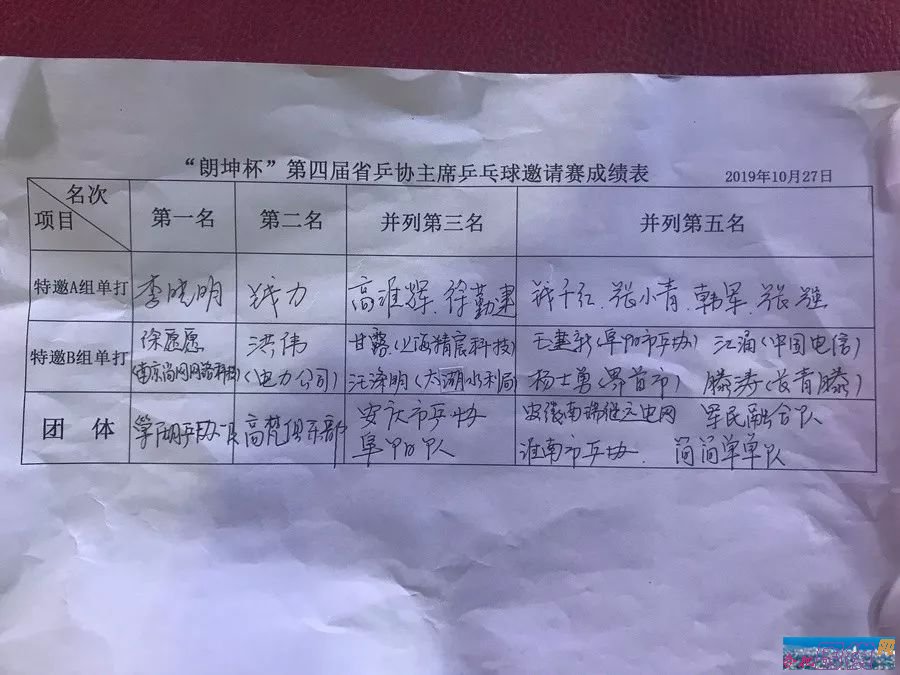 “朗坤杯”第四届省乒协主席乒乓球邀请赛成绩表 2019年10月27日
名次
项目 第一名 第二名 并列第三名 并列第五名
特邀A组单打 李晓明 钱力 高淮辉、徐勤建 钱千红、张小青、韩军、张强
特邀B组单打 徐愿愿 洪伟 甘露(上海精宸科技) 王建新(阜阳市乒协) 江涌(中国电信)
(南京尚网网络科技) (电力公司) 汪涤明(太湖水利局) 杨士勇(界首市) 滕涛(长青藤)
团体 高梵俱乐部 安庆市乒协 安徽南瑞继远电网 军民融合队
阜阳队 淮南市乒协 简简单单队